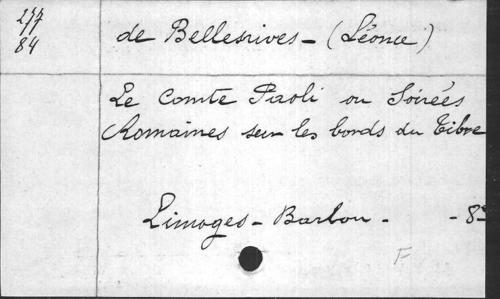 277
84
de Bellesrives - (Léonce)
Le Comte Paoli ou Soirées
Romaines sur les bords du Tibre
Limoges - Barbou - - 8°
F